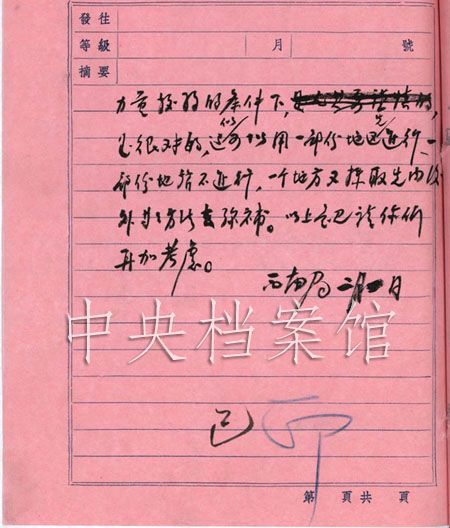 發往
等級 月 號
摘要
力量较弱的条件下,
很对的,似可以用一部份地区先进行,一
部份地 不进行,一个地方又採取先内後
外 方法去弥补。以上 请你们
再加考虑。
西南局 二月 日
中央档案馆
已 印
第 頁共 頁